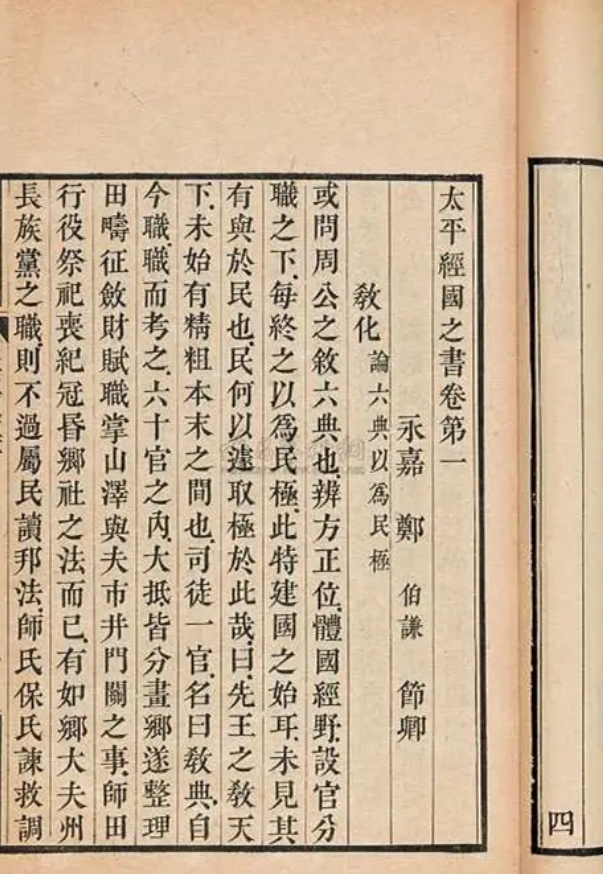 四
太平經國之書卷第一
永嘉 鄭 伯謙 節卿
敎化 論六典以爲民極
或問周公之敘六典也辨方正位體國經野設官分
職之下每終之以爲民極此特建國之始耳未見其
有與於民也民何以遽取極於此哉曰先王之敎天
下未始有精粗本末之間也司徒一官名曰敎典自
今職職而考之六十官之內大抵皆分畫鄉遂整理
田疇征斂財賦職掌山澤與夫市井門關之事師田
行役祭祀喪紀冠昏鄉社之法而已有如鄉大夫州
長族黨之職則不過屬民讀邦法師氏保氏諫救調